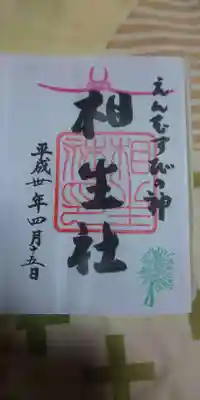 えんむすびの神
相生社
平成卅一年四月十五日